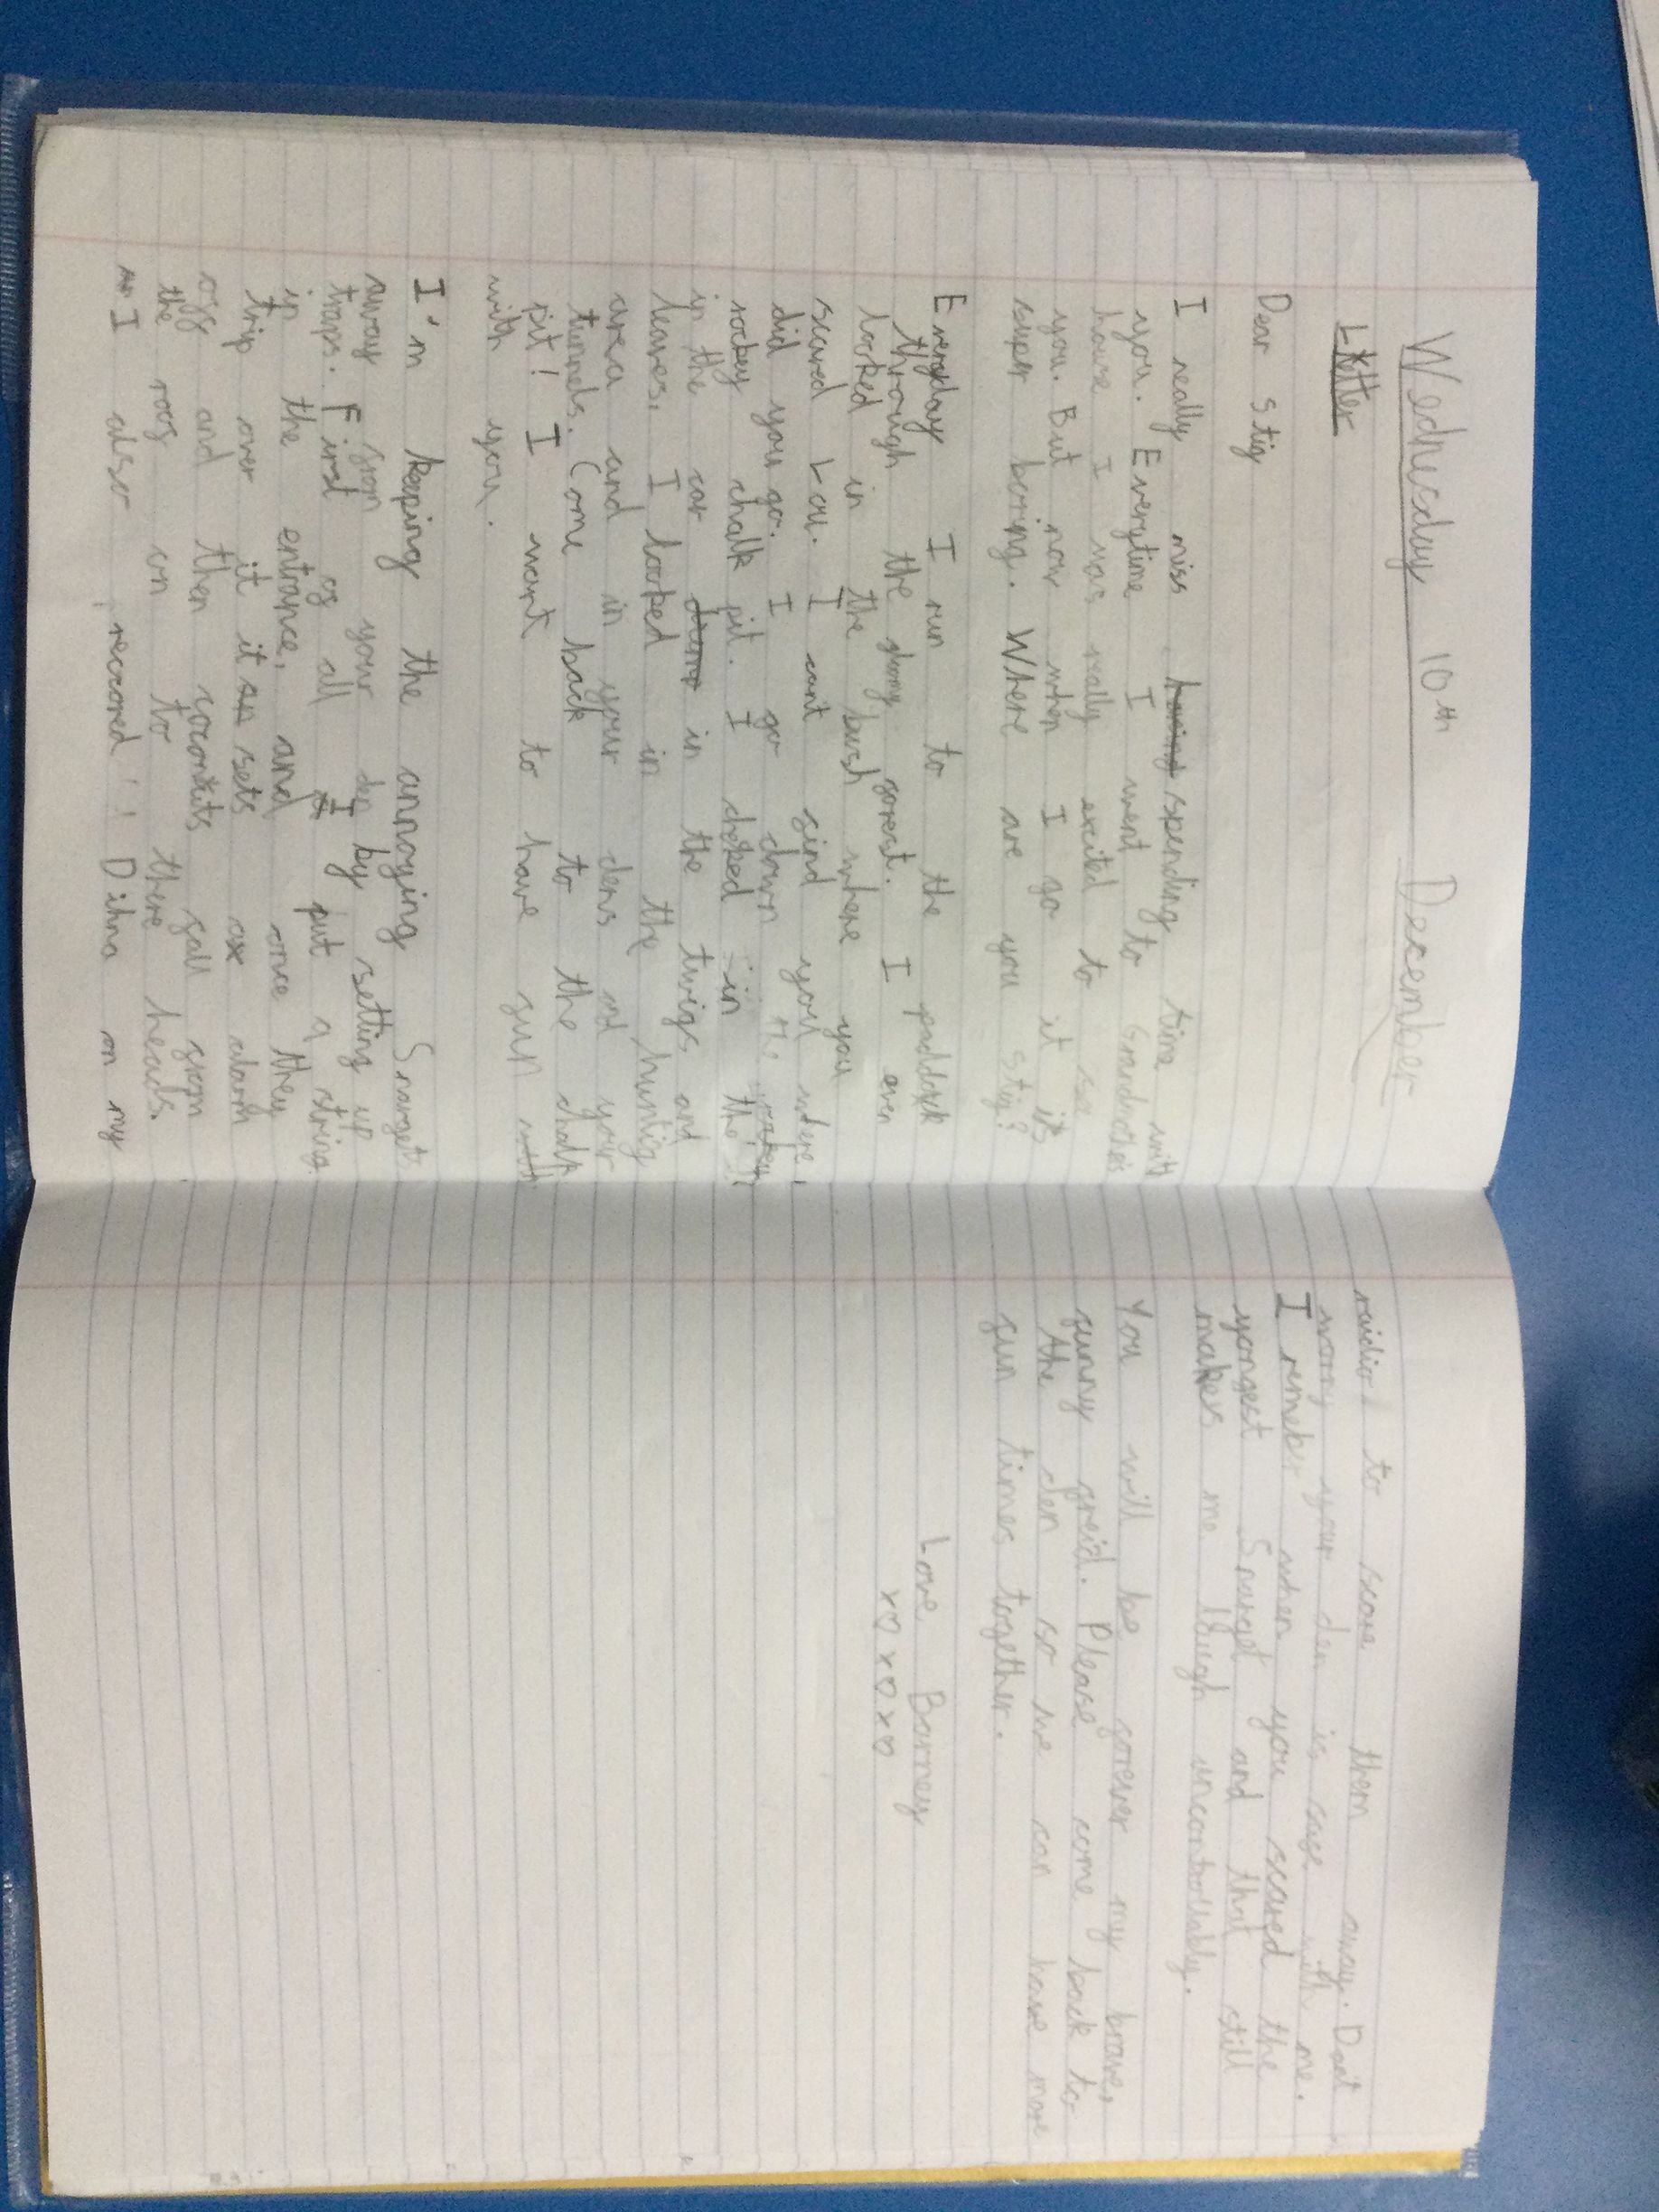 Wednesday 10th December
Letter
Dear Stig
I really miss having spending time with
you. Everytime I went to Grandmothers
house I was really excited to see
you. But now when I go it it's
super boring. Where are you Stig?
Everyday I run to the paddock
through the gloomy forest. I even
looked in the bush where you
scared Lou. I cant find you where
did you go. I go down the
rockey chalk pit. I cheked in the
in the car dump in the twigs and
leaves. I looked in the huntig
area and in your dens and your
tunnels. Come back to the chalk
pit! I want to have fun with
with you.
I'm keeping the annoying Snargets
away from your den by setting up
traps. First of all I put a string
in the entrance, and once they
trip over it it sets alarm
off and then coconuts fall from
the roof on to there heads.
I also recored Dihno on my
raidio to scare them away. Don't
worry your den is safe with me.
I remeber when you scared the
yongest Snarget and that still
makes me laugh uncontrollably.
You will be forever my brave,
funny freid. Please come back to
the den so we can have more
fun times together.
Love Barney
x♡x♡x♡